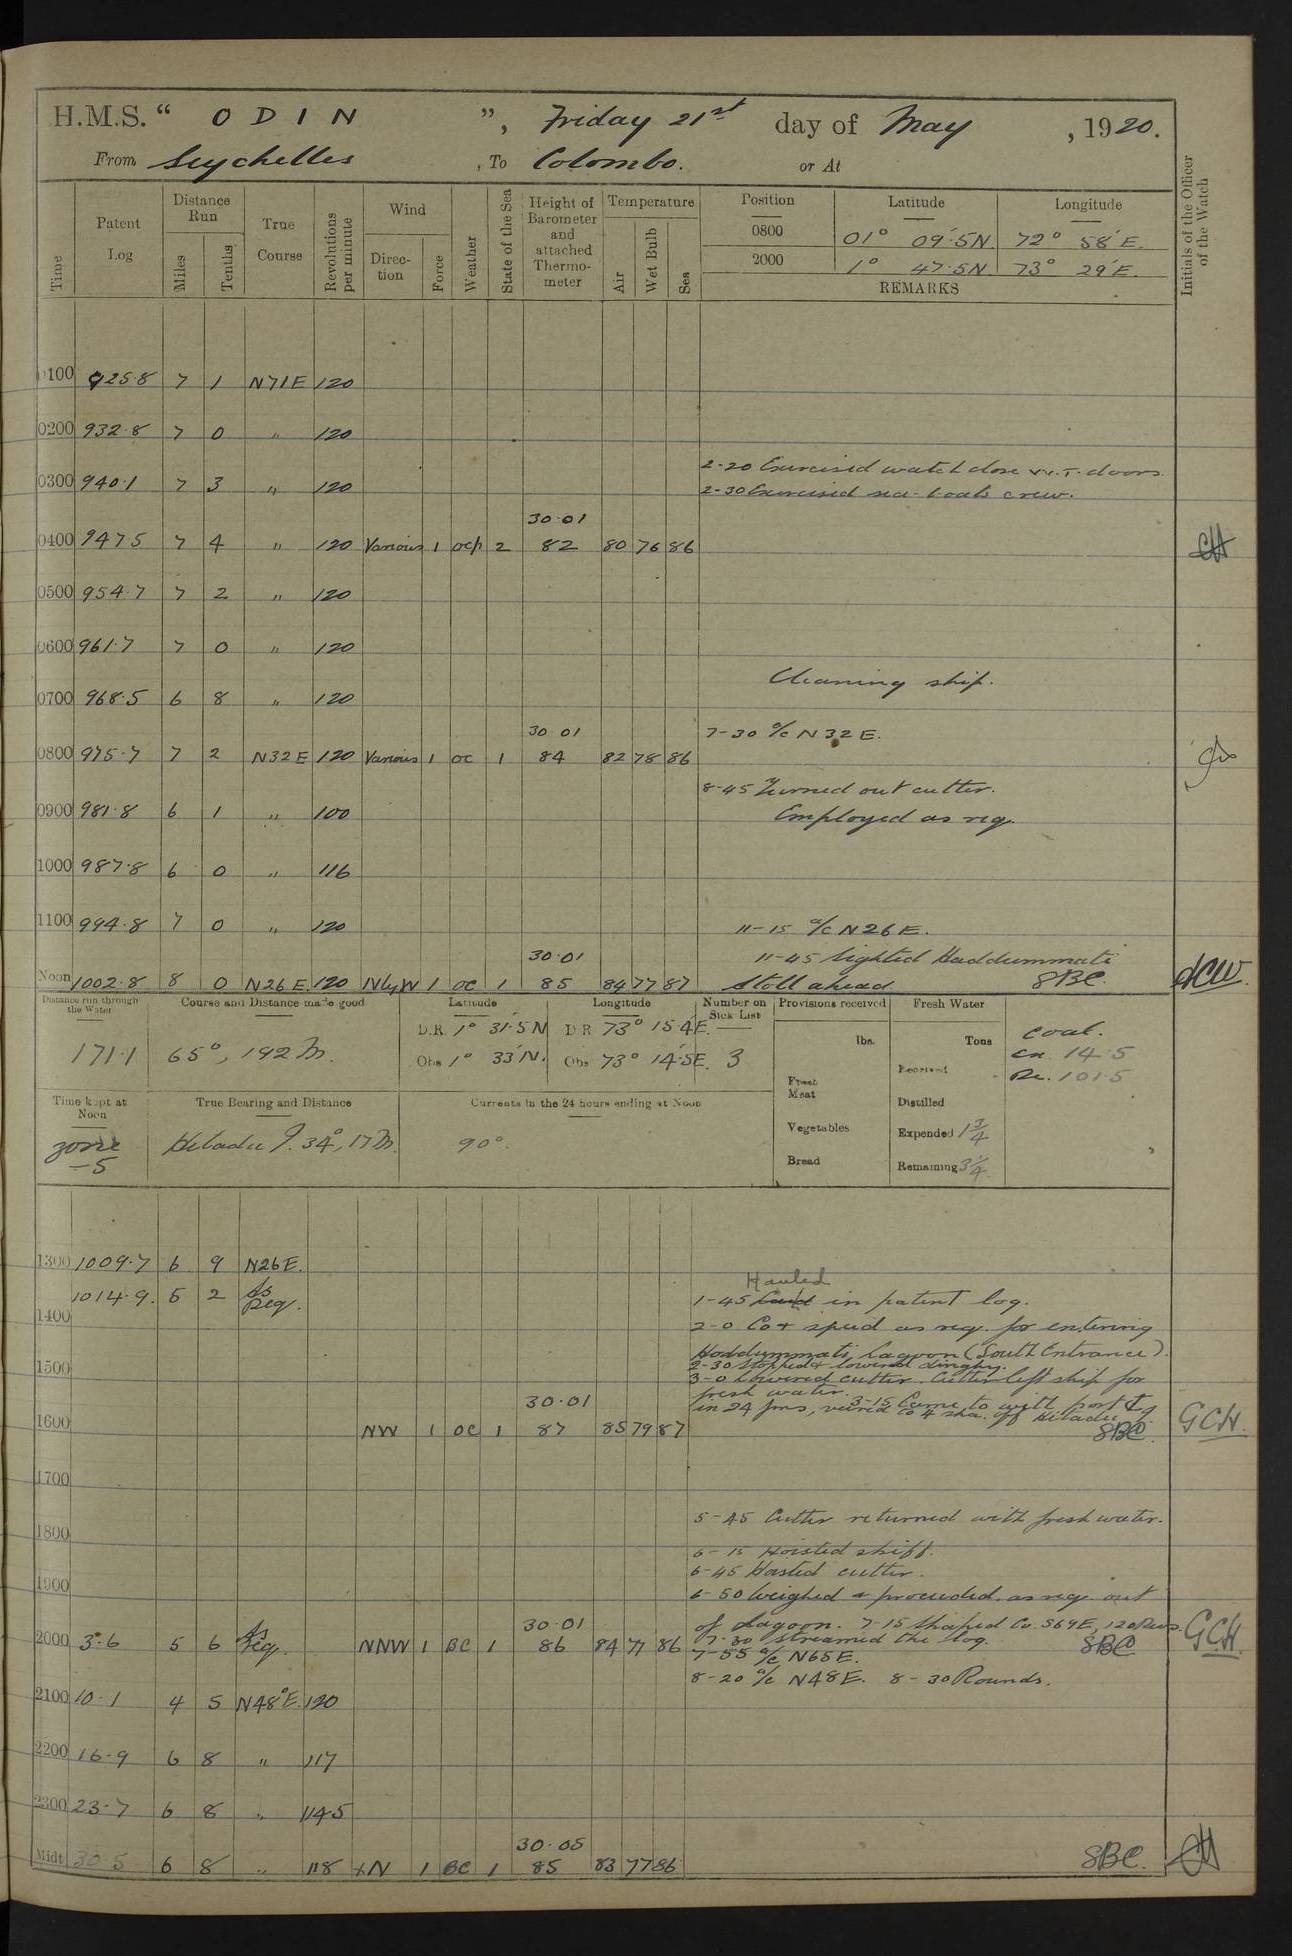 H.M.S. “ ODIN ”, Friday 21st day of May , 1920.
From Seychelles , To Colombo. or At
Time Patent Log Distance Run Miles Tenths True Course Revolutions per minute Wind Direction Force Weather State of the Sea Height of Barometer and attached Thermometer Temperature Air Wet Bulb Sea Position Latitude Longitude Initials of the Officer of the Watch
0800 01° 09′.5N 72° 58′ E.
2000 1° 47.5N 73° 29′E.
REMARKS
0100 925.8 7 1 N71E 120
0200 932.8 7 0 " 120
2-20 Exercised watch close W.T. doors
0300 940.1 7 3 " 120 2-30 Exercised sea-boats crew.
30.01
0400 947.5 7 4 " 120 Various 1 ocp 2 82 80 76 86
0500 954.7 7 2 " 120
0600 961.7 7 0 " 120
Cleaning ship.
0700 968.5 6 8 " 120
30.01 7-30 a/c N32E.
0800 975.7 7 2 N32E 120 Various 1 oc 1 84 82 78 86
8-45 Turned out cutter.
0900 981.8 6 1 " 100 Employed as req.
1000 987.8 6 0 " 116
1100 994.8 7 0 " 120 11-15 a/c N26E.
30.01 11-45 Sighted Haddummati
Noon 1002.8 8 0 N26E. 120 NbyW 1 oc 1 85 84 77 87 Atoll ahead SBC. dCW.
Distance run through the Water Course and Distance made good Latitude Longitude Number on Sick List Provisions received Fresh Water
D.R. 1° 31′.5N D R 73° 15′.4E.
171.1 65°, 192 M. Obs 1° 33′N. Obs 73° 14′.5E. 3
lbs. Tons Coal.
Received Cn. 14.5
Fresh Meat Re. 101.5
Time kept at Noon True Bearing and Distance Currents in the 24 hours ending at Noon Distilled
Vegetables Expended 1 3/4
zone -5 34°, 17 M. 90°
Bread Remaining 3 1/4
1300 1009.7 6 9 N26E.
Hauled
1014.9. 5 2 As Req. 1-45 in patent log.
1400 2-0 Co + speed as req. for entering
Haddummati Lagoon (South Entrance).
1500 2-30 Stopped & lowered dinghy.
3-0 Lowered cutter. Cutter left ship for
fresh water. 3-15 Came to with port
30.01 in 24 fms, veered to 4 sha. off
1600 NW 1 OC 1 87 85 79 87 SBC GCH.
1700
5-45 Cutter returned with fresh water.
1800
6-15 Hoisted skiff.
6-45 Hoisted cutter.
1900
6-50 Weighed & proceeded as req. out
30.01 of Lagoon. 7-15 Shaped Co. S69E, 120 Revs.
2000 3.6 5 6 As req. NNW 1 BC 1 86 84 77 86 7-30 Streamed the log. SBC GCH.
7-55 a/c N65E.
8-20 a/c N48E. 8-30 Rounds.
2100 10.1 4 5 N48°E. 120
2200 16.9 6 8 " 117
2300 23.7 6 8 " 114.5
30.05
Midt 30.5 6 8 " 118 N 1 BC 1 85 83 77 86 SBC.